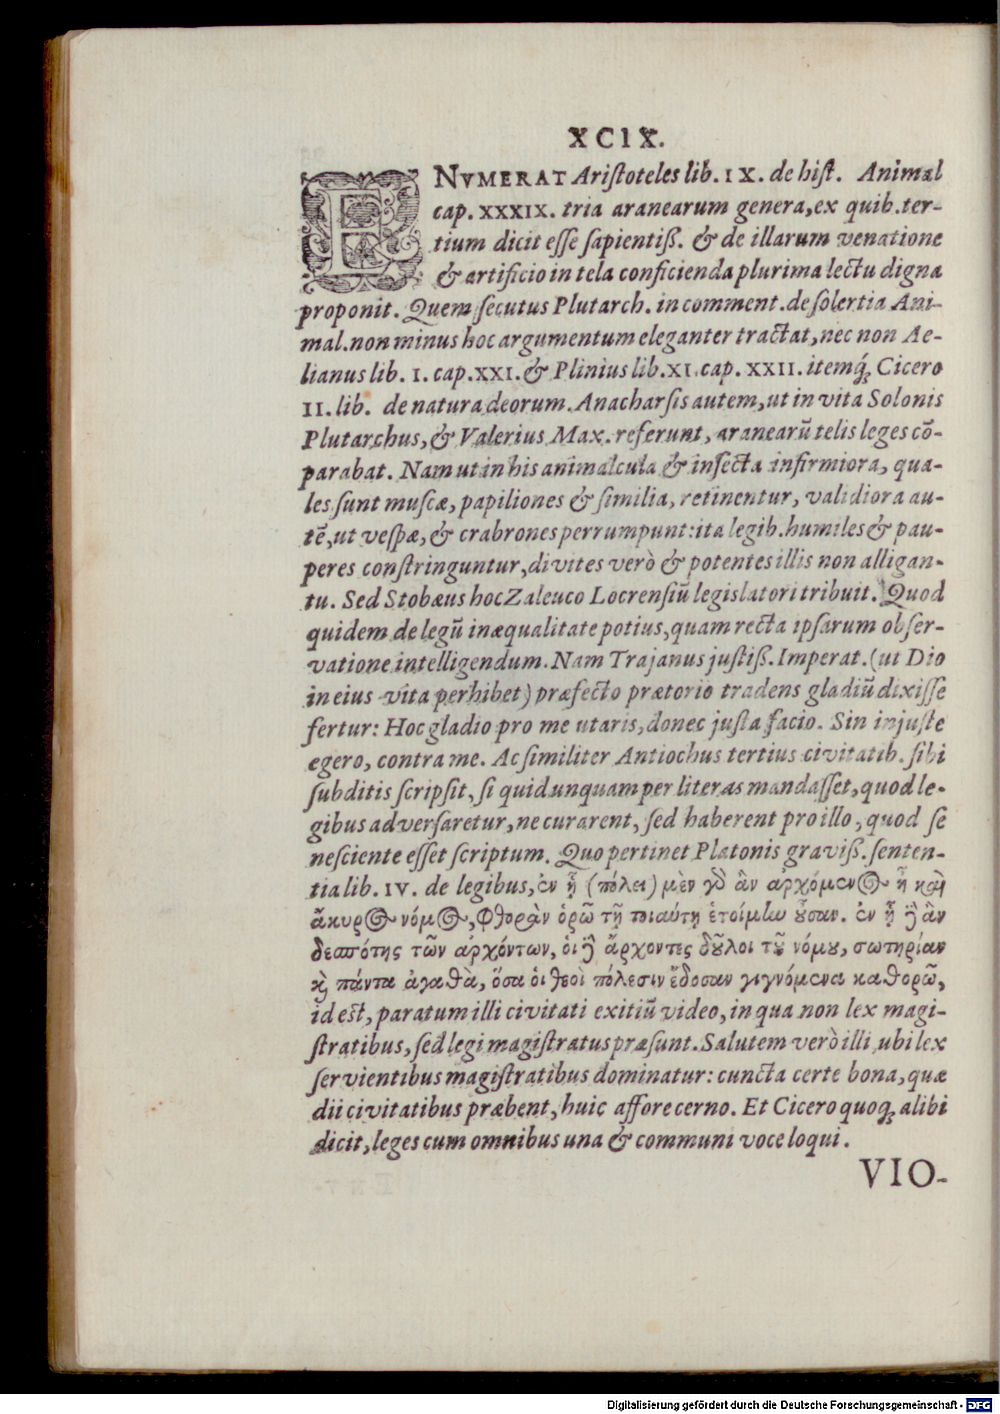 XCIX.
ENVMERAT Ariſtoteles lib. IX. de hiſt. Animal
cap. XXXIX. tria aranearum genera, ex quib. ter-
tium dicit eſſe ſapientiß. & de illarum venatione
& artificio in tela conficienda plurima lectu digna
proponit. Quem ſecutus Plutarch. in comment. de ſolertia Ani-
mal. non minus hoc argumentum eleganter tractat, nec non Ae-
lianus lib. I. cap. XXI. & Plinius lib. XI. cap. XXII. itemq́; Cicero
II. lib. de natura deorum. Anacharſis autem, ut in vita Solonis
Plutarchus, & Valerius Max. referunt, aranearū telis leges cō-
parabat. Nam ut in his animalcula & inſecta infirmiora, qua-
les ſunt muſcæ, papiliones & ſimilia, retinentur, validiora au-
tē, ut veſpæ, & crabrones perrumpunt: ita legib. humiles & pau-
peres conſtringuntur, divites verò & potentes illis non alligan-
tu. Sed Stobæus hoc Zaleuco Locrenſiū legislatori tribuit. Quod
quidem de legū inæqualitate potius, quam recta ipſarum obſer-
vatione intelligendum. Nam Trajanus juſtiß. Imperat. (ut Dio
in eius vita perhibet) præfecto prætorio tradens gladiū dixiſſe
fertur: Hoc gladio pro me utaris, donec juſta facio. Sin injuſte
egero, contra me. Ac ſimiliter Antiochus tertius civitatib. ſibi
ſubditis ſcripſit, ſi quid unquam per literas mandaſſet, quod le-
gibus adverſaretur, ne curarent, ſed haberent pro illo, quod ſe
neſciente eſſet ſcriptum. Quo pertinet Platonis graviß. ſenten-
tia lib. IV. de legibus, ἐν ᾗ (πόλει) μὲν γὸ ἂν ἀρχόμενος ᾖ καὶ
ἄκυρος νόμος, φθορὰν ὁρῶ τῇ τοιαύτῃ ἑτοίμην οὖσαν. ἐν ᾗ δὲ ἂν
δεσπότης τῶν ἀρχόντων, οἱ δὲ ἄρχοντες δοῦλοι τοῦ νόμου, σωτηρίαν
καὶ πάντα ἀγαθὰ, ὅσα οἱ θεοὶ πόλεσιν ἔδοσαν γιγνόμενα καθορῶ,
id eſt, paratum illi civitati exitiū video, in qua non lex magi-
ſtratibus, ſed legi magiſtratus præſunt. Salutem verò illi, ubi lex
ſervientibus magiſtratibus dominatur: cuncta certe bona, quæ
dii civitatibus præbent, huic affore cerno. Et Cicero quoq; alibi
dicit, leges cum omnibus una & communi voce loqui.
VIO-
Digitalisierung gefördert durch die Deutsche Forschungsgemeinschaft - DFG